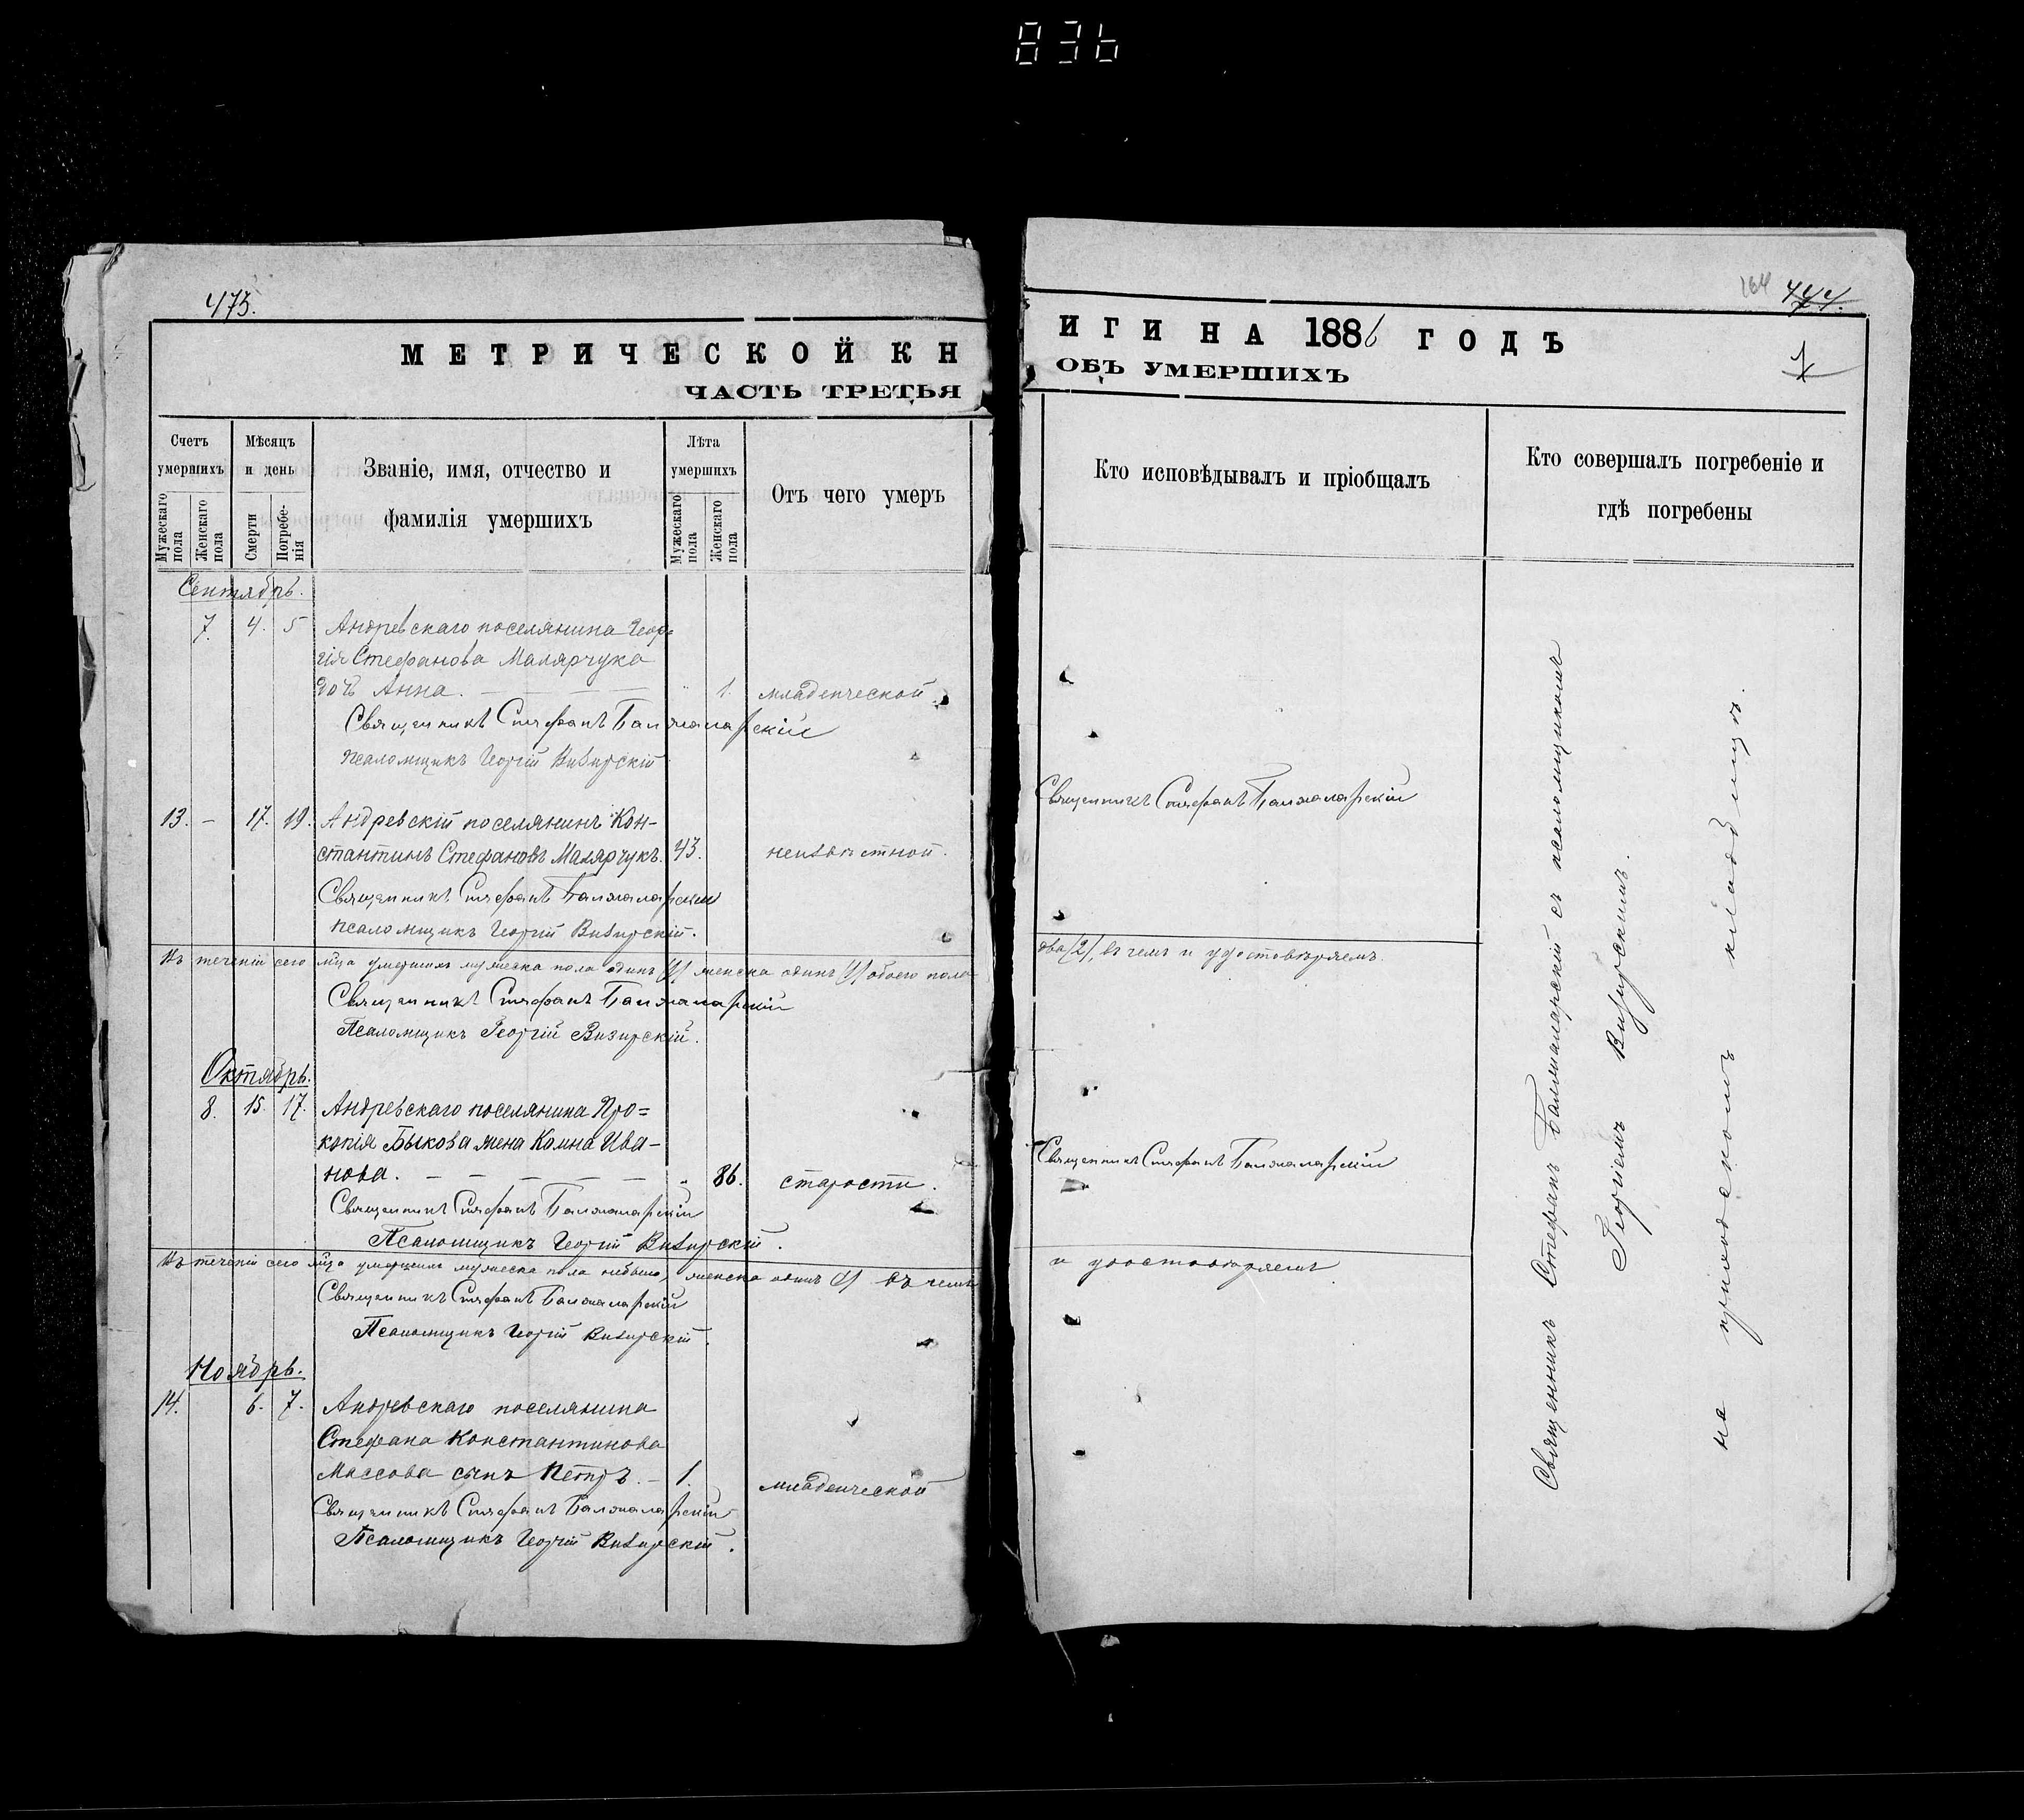 836
473.
МЕТРИЧЕСКОЙ КН
ЧАСТЬ ТРЕТЬЯ
Счетъ умершихъ
Мужескаго пола
Женскаго пола
Мѣсяцъ и день
Смерти
Погребе-
нія
Званіе, имя, отчество и
фамилія умершихъ
Лѣта умершихъ
Мужескаго пола
Женскаго пола
Отъ чего умеръ
Сентябрь.
7. 4. 5 Андревскаго поселянина Геор=
гія Стефанова Малярчука
дочь Анна. — — — — " 1. младенческой.
Священникъ Стефанъ Балжаларскій
Псаломщикъ Георгій Визирскій
13. — 17. 19. Андревскій поселянинъ Кон-
стантинъ Стефановъ Малярчукъ. 43. неизвѣстной.
Священникъ Стефанъ Балжаларскій
Псаломщикъ Георгій Визирскій.
Въ теченіи сего мца умершихъ мужеска пола одинъ (1) женска одинъ (1) обоего пола
Священникъ Стефанъ Балжаларскій
Псаломщикъ Георгій Визирскій.
Октябрь.
8. 15. 17. Андревскаго поселянина Про=
копія Быкова жена Иоанна Ива-
нова. — — — — — " 86. старости.
Священникъ Стефанъ Балжаларскій
Псаломщикъ Георгій Визирскій.
Въ теченіи сего мца умершихъ мужеска пола небыло, женска одинъ (1) въ чемъ
Священникъ Стефанъ Балжаларскій
Псаломщикъ Георгій Визирскій.
Ноябрь.
14. 6. 7. Андревскаго поселянина
Стефана Константинова
Массова сынъ Петръ. — 1. младенческой
Священникъ Стефанъ Балжаларскій
Псаломщикъ Георгій Визирскій.
164 474.
ИГИ НА 1886 ГОДЪ
ОБЪ УМЕРШИХЪ
Кто исповѣдывалъ и пріобщалъ
Кто совершалъ погребеніе и
гдѣ погребены
Священникъ Стефанъ Балжаларскій
два (2), въ чемъ и удостовѣряемъ.
Священникъ Стефанъ Балжаларскій
и удостовѣряемъ
Священникъ Стефанъ Балжаларскій съ псаломщикомъ
Георгіемъ Визирскимъ.
на приходскомъ кладбищѣ.